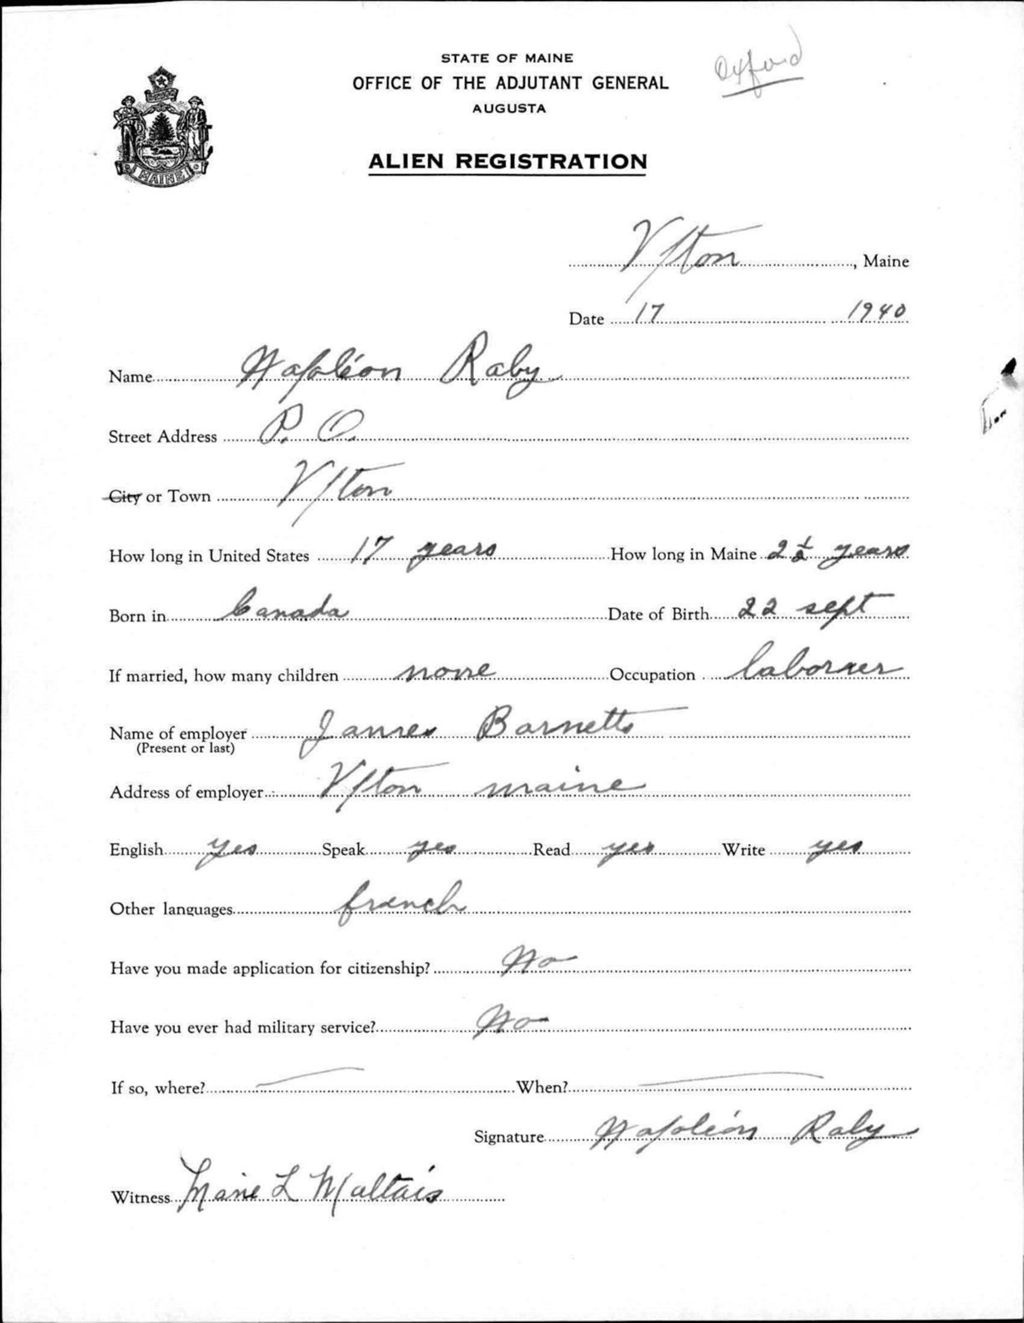 Oxford
STATE OF MAINE
OFFICE OF THE ADJUTANT GENERAL
AUGUSTA
ALIEN REGISTRATION
MAINE
Upton, Maine
Date 17 1940
Name Napoléon Raby
Street Address P. O.
City or Town Upton
How long in United States 17 years How long in Maine 2 1/2 years
Born in Canada Date of Birth 22 sept
If married, how many children none Occupation laborner
Name of employer James Barnetts
(Present or last)
Address of employer Upton maine
English yes Speak yes Read yes Write yes
Other languages french
Have you made application for citizenship? No
Have you ever had military service? No
If so, where? — When? —
Signature Napoléon Raby
Witness Marie L Maltais